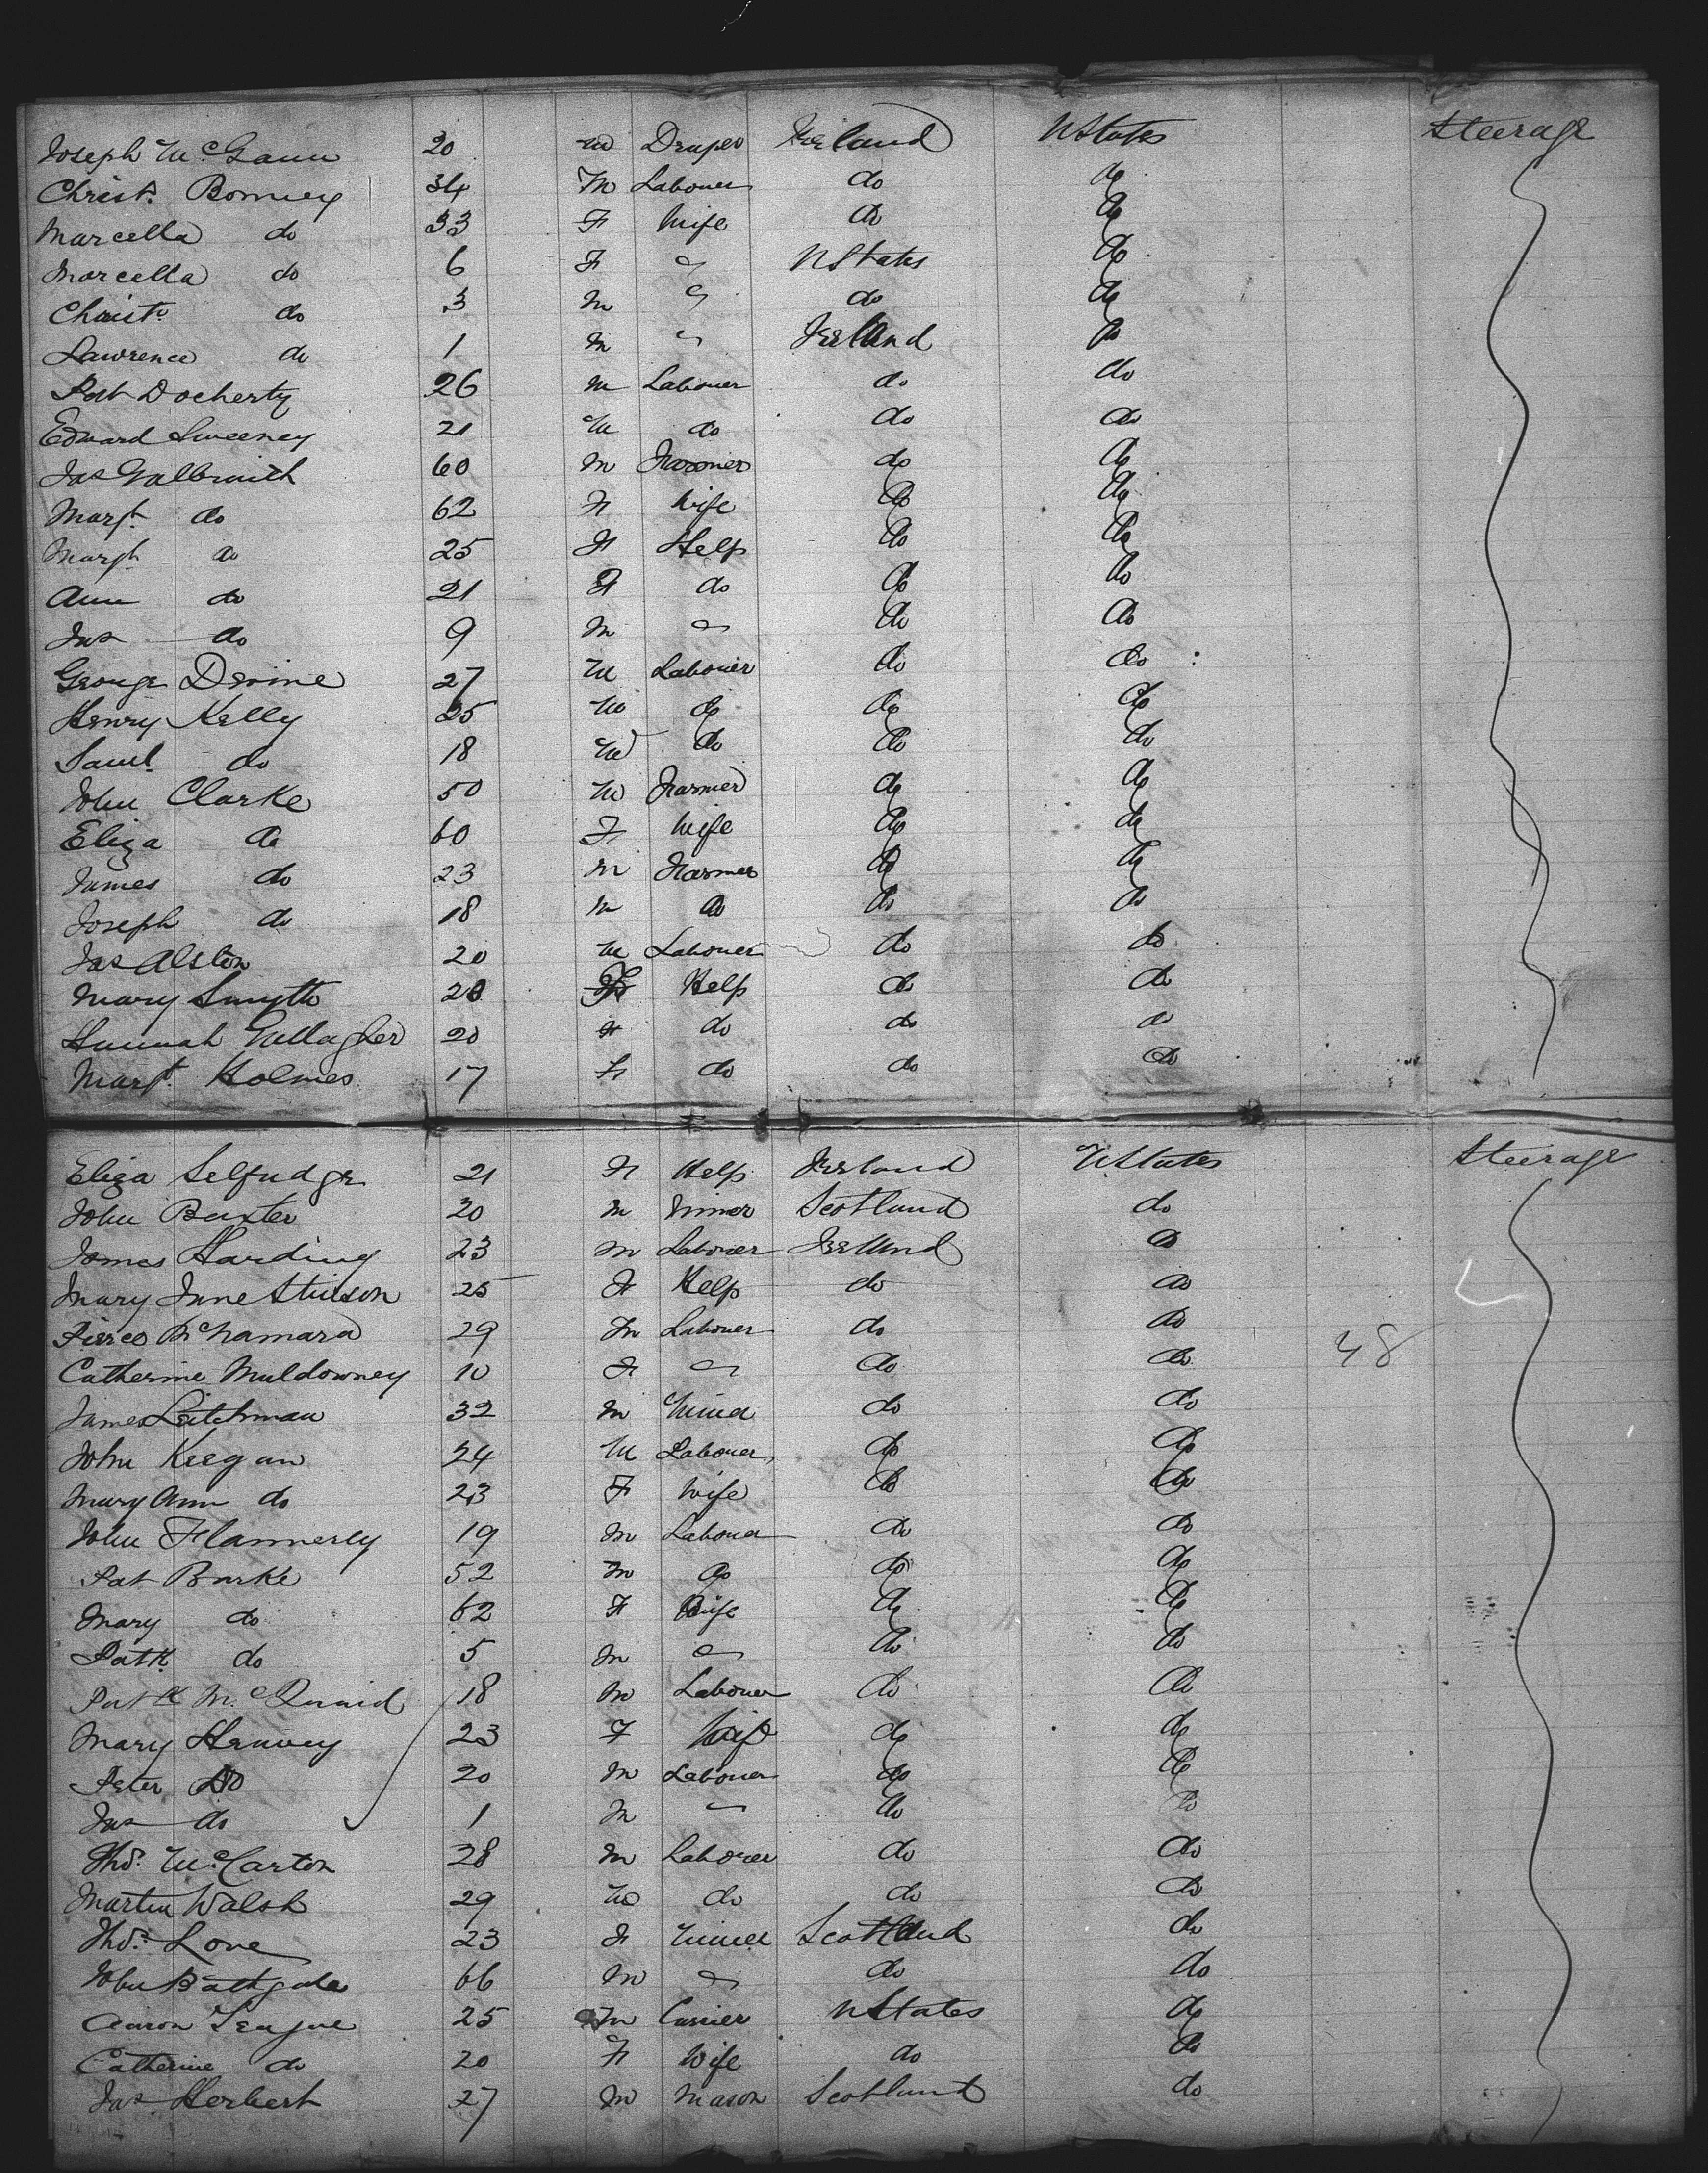 Joseph McGann 20 M Draper Ireland UStates Steerage
Christr. Bonney 34 M Labourer do do
Marcella do 33 F Wife do do
Marcella do 6 F " UStates do
Christr do 3 M " do do
Lawrence do 1 M " Ireland do
Pat Docherty 26 M Labourer do do
Edward Sweeney 21 M do do do
Jas Galbraith 60 M Farmer do do
Margt. do 62 F Wife do do
Margt do 25 F Help do do
Ann do 21 F do do do
Jas do 9 M " do do
George Devine 27 M Labourer do do
Henry Kelly 25 M do do do
Saml. do 18 M do do do
John Clarke 50 M Farmer do do
Eliza do 60 F Wife do do
James do 23 M Farmer do do
Joseph do 18 M do do do
Jas Alston 20 M Labourer do do
Mary Smyth 20 F Help do do
Hannah Gallagher 20 F do do do
Margt. Holmes 17 F do do do
Eliza Selfudge 21 F Help Ireland UStates Steerage
John Baxter 20 M Miner Scotland do
James Harding 23 M Labourer Ireland do
Mary Jane Stinson 25 F Help do do
Pierce McNamara 29 M Labourer do do
Catherine Muldowney 10 F " do do 48
James Leitchman 32 M Miner do do
John Keegan 24 M Labourer do do
Mary Ann do 23 F Wife do do
John Flannerly 19 M Labourer do do
Pat Burke 52 M do do do
Mary do 62 F Wife do do
Patk. do 5 M " do do
Patk McQuaid 18 M Labourer do do
Mary Hanvey 23 F Wife do do
Peter Do 20 M Labourer do do
Jas do 1 M " do do
Thos. McCarton 28 M Labourer do do
Martin Walsh 29 M do do do
Thos. Love 23 F Miner Scotland do
John Bathgate 66 M " do do
Aaron Teague 25 M Currier UStates do
Catherine do 20 F Wife do do
Jas Herbert 27 M Mason Scotland do